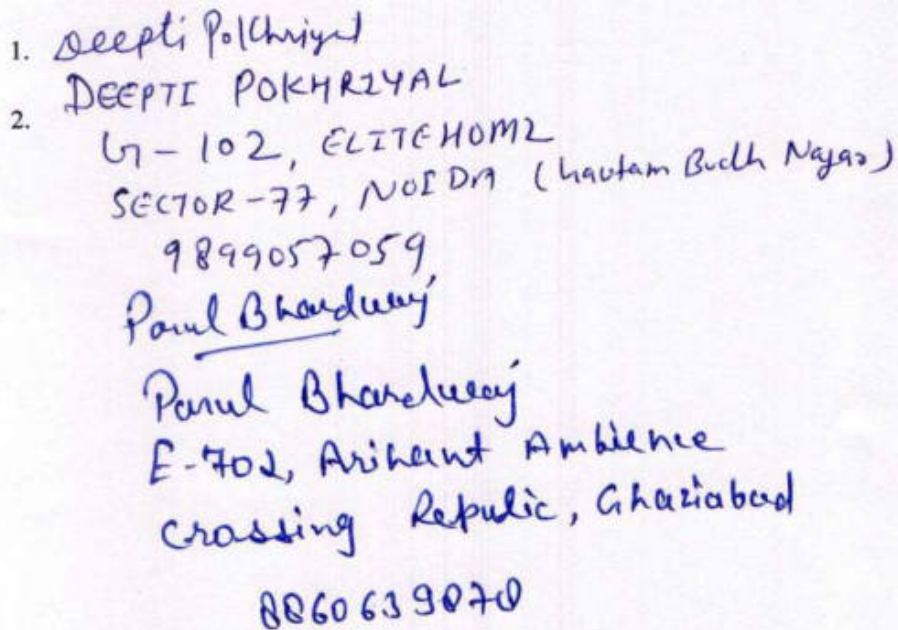 1. Deepti Pokhriyal
DEEPTI POKHRIYAL
2.
G-102, ELITE HOMZ
SECTOR-77, NOIDA (Gautam Budh Nagar)
9899057059
Parul Bhardwaj
Parul Bhardwaj
E-702, Arihant Ambience
Crossing Repulic, Ghaziabad
8860639878